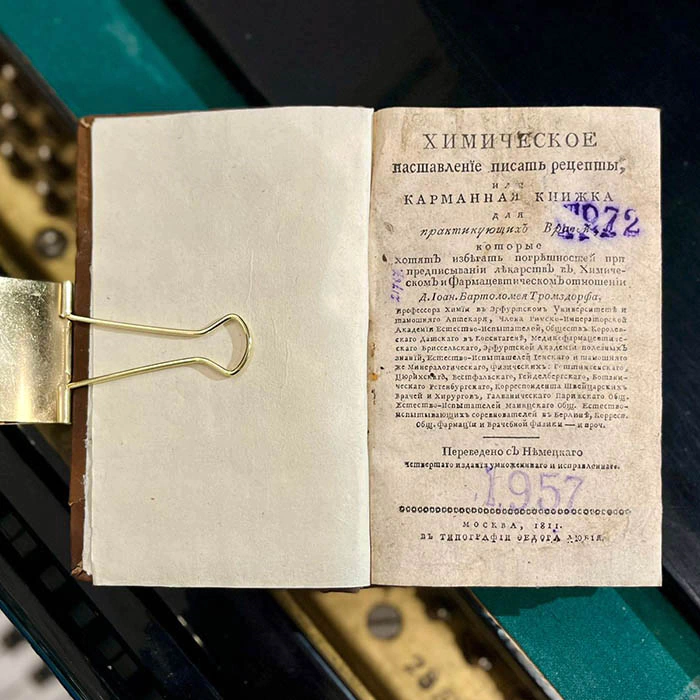 ХИМИЧЕСКОЕ
наставленіе писать рецепты,
или
КАРМАННАЯ КНИЖКА
для
практикующихъ
1972
которые
хотятъ избѣгать погрѣшностей при
предписываніи лѣкарствъ въ Химиче-
скомъ и Фармацевтическомъ отношеніи
Д. Іоан. Бартоломея Тромздорфа,
Профессора Химіи въ Эрфуртскомъ Университетѣ и
тамошняго Аптекаря, Члена Римско-Императорской
Академіи Естество-Испытателей, Обществъ Королев-
скаго Датскаго въ Копенгагенѣ, Медикофармацевтиче-
скаго Бриссельскаго, Эрфуртской Академіи полезныхъ
Знаній, Естество-Испытателей Іенскаго и тамошняго
же Минералогическаго, Физическихъ: Геттингенскаго,
Цюрихскаго, Вестфальскаго, Гейдельбергскаго, Ботани-
ческаго Регенбургскаго, Корреспондента Швейцарскихъ
Врачей и Хирурговъ, Галваническаго Парижскаго Общ.
Естество-Испытателей Маинцскаго Общ. Естество-
испытывающихъ соревнователей въ Берлинѣ, Корресп.
Общ. Фармаціи и Врачебной Физики — и проч.
Переведено съ Нѣмецкаго
четвертаго изданія умноженнаго и исправленнаго.
1957
МОСКВА, 1811.
ВЪ ТИПОГРАФІИ ѲЕДОРА ЛЮБІЯ.
288